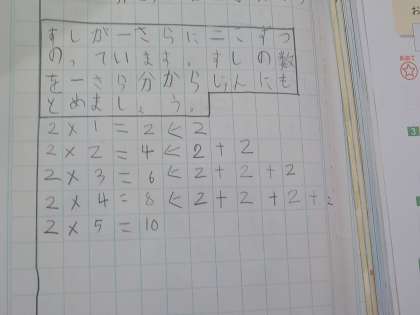 すしが一さらに二こずつ
の、ています。すしの数
を一さら分からじゅんにも
とめましょう。
2×1=2←2
2×2=4←2+2
2×3=6←2+2+2
2×4=8←2+2+2+2
2×5=10
3